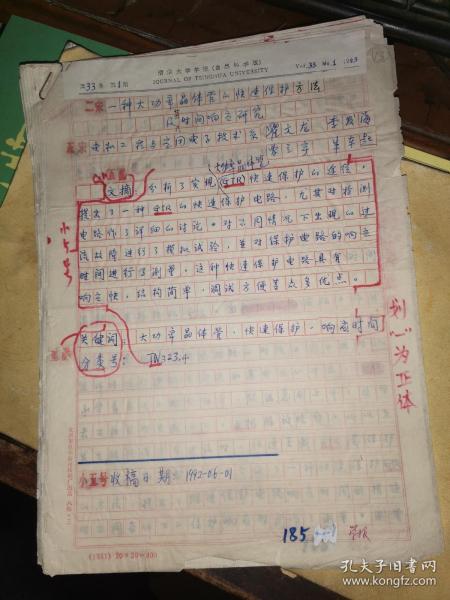 第33卷 第1期
清华大学学报(自然科学版)
JOURNAL OF TSINGHUA UNIVERSITY
Vol.33 No.1 1993
二宋 一种大功率晶体管的快速保护方法
及其时间响应研究
电机工程与应用电子技术系 瞿文龙 李发海
文摘 分析了实现GTR快速保护的途径,
大功率晶体管
提出了一种GTR的快速保护电路,尤其对检测
电路作了详细的讨论。对不同情况下出现的过
流故障进行了模拟试验,并对保护电路的响应
时间进行了测量。这种快速保护电路具有
响应快,结构简单,调试方便等众多优点。
小5号
关键词:大功率晶体管,快速保护,响应时间
分类号:TN323.4
划"_"为正体
小五号 收稿日期:1992-06-01
(1551) 20×20=400
185
学报
孔夫子旧书网
www.kongfz.com